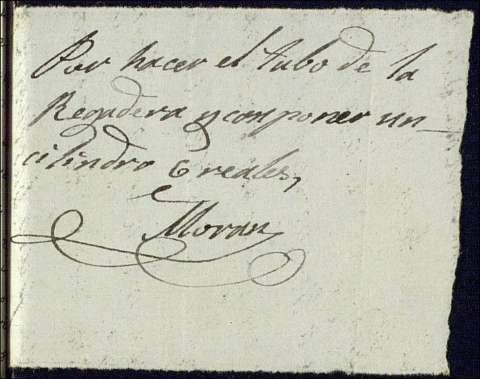 Por hacer el tubo de la
Regadera y componer un
cilindro 6 reales,
Moran